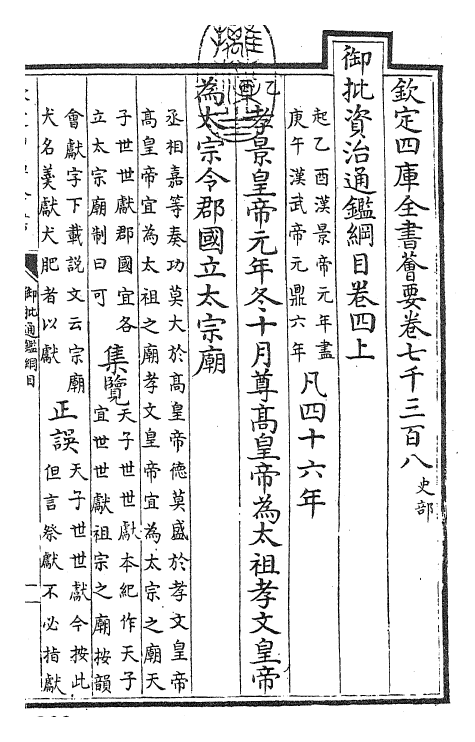 欽定四庫全書薈要卷七千三百八 史部
御批資治通鑑綱目卷四上
起乙酉漢景帝元年盡
庚午漢武帝元鼎六年
凡四十六年
乙酉
孝景皇帝元年冬十月尊髙皇帝為太祖孝文皇帝
為太宗令郡國立太宗廟
丞相嘉等奏功莫大於髙皇帝德莫盛於孝文皇帝
髙皇帝宜為太祖之廟孝文皇帝宜為太宗之廟天
子世世獻郡國宜各
立太宗廟制曰可
集覽
天子世世獻本紀作天子
宜世世獻祖宗之廟按韻
會獻字下載說文云宗廟
犬名羮獻犬肥者以獻
正誤
天子世世獻今按此
但言祭獻不必指獻
御批通鑑綱目
一